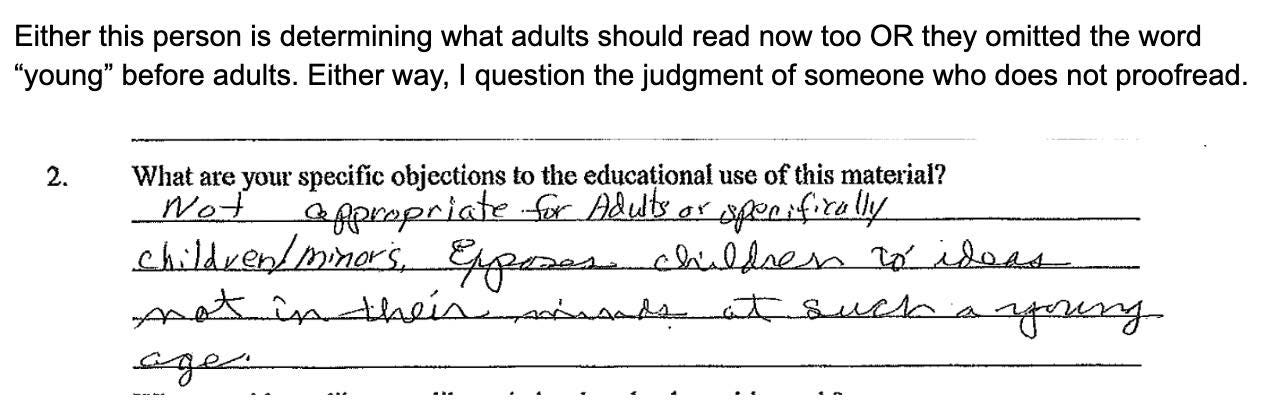 Either this person is determining what adults should read now too OR they omitted the word
“young” before adults. Either way, I question the judgment of someone who does not proofread.
2. What are your specific objections to the educational use of this material?
Not appropriate for Adults or specifically
children/minors. Exposes children to ideas
not in their minds at such a young
age.